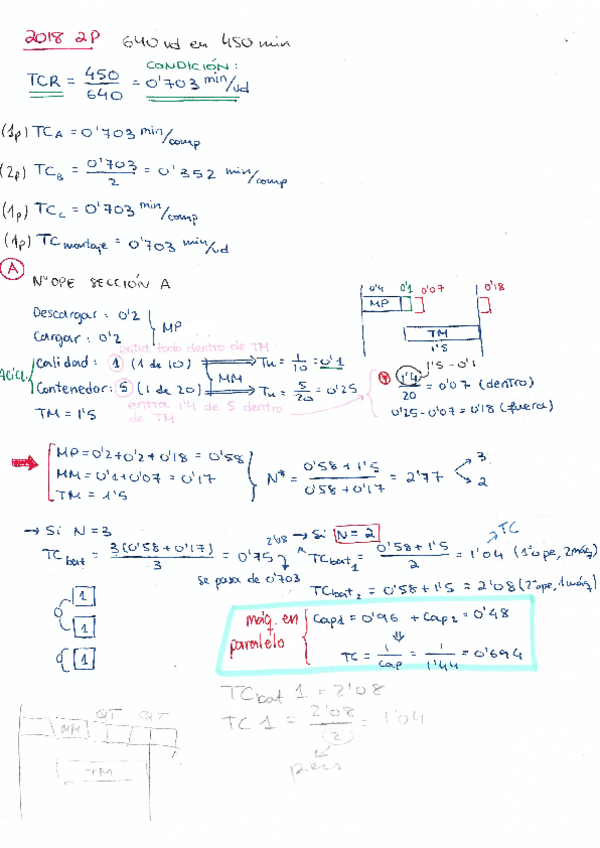 2018 2P 640 ud en 450 min
CONDICIÓN:
TCR = 450/640 = 0'703 min/ud
(1p) TCA = 0'703 min/comp
(2p) TCB = 0'703/2 = 0'352 min/comp
(1p) TCc = 0'703 min/comp
(1p) TCmontaje = 0'703 min/ud
A
NºOPE SECCIÓN A
0'4 0'1 0'07 0'18
MP
TM
1'5
Descargar: 0'2
Cargar: 0'2
MP
entra todo dentro de TM
Calidad: 1 (1 de 10) Tu = 1/10 = 0'1
MM
Contenedor: 5 (1 de 20) Tu = 5/20 = 0'25
entra 1'4 de 5 dentro
de TM
TM = 1'5
1'5 - 0'1
1'4/20 = 0'07 (dentro)
0'25 - 0'07 = 0'18 (fuera)
MP = 0'2 + 0'2 + 0'18 = 0'58
MM = 0'1 + 0'07 = 0'17
TM = 1'5
N* = 0'58 + 1'5 / 0'58 + 0'17 = 2'77
3
2
→ Si N = 3
TCbat = 3(0'58 + 0'17)/3 = 0'75
se pasa de 0'703
→ Si N = 2
2'08
TC
TCbat1 = 0'58 + 1'5 / 2 = 1'04 (1ºope, 2máq)
TCbat2 = 0'58 + 1'5 = 2'08 (2ºope, 1máq)
1
1
1
máq. en
paralelo
Cap1 = 0'96 + Cap2 = 0'48
TC = 1/Cap = 1/1'44 = 0'694
TCbat 1 = 2'08
TC 1 = 2'08/2 = 1'04
MM
TM